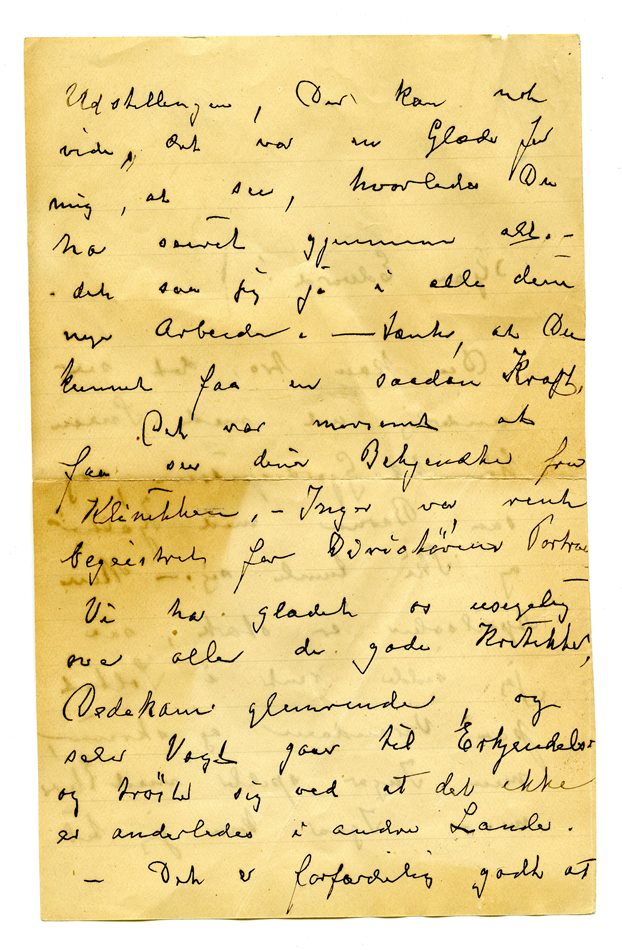 Udstillingen, Du kan nok
vide, det var en Glæde for
mig, at see, hvorledes Du
ha seiret gjennem alt. –
det saa jeg jo i alle dine
nye Arbeider. – tænk, at Du
kunnet faa en saadan Kraft.
Det var morsomt at
faa see dine Bekjendte fra
Klinikken, – Inger var rent
begeistret for Direktörens Portræ
Vi ha glædet os usigelig
over alle de gode Kritikker,
Dedekam glimrende, og
selv Vogt gaar til Erkjendelse
og tröster sig ved at det ikke
er anderledes i andre Lande.
– Det er forfærdelig godt at